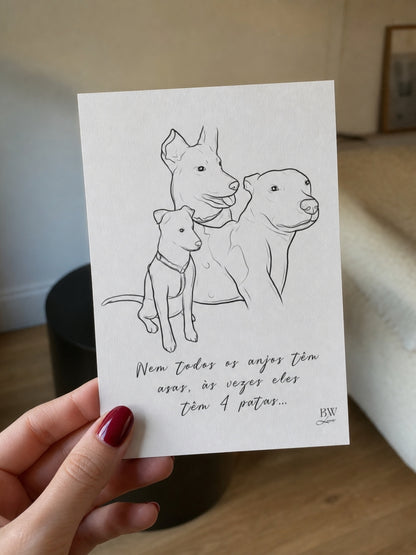 Nem todos os anjos têm
asas, às vezes eles
têm 4 patas...
BW